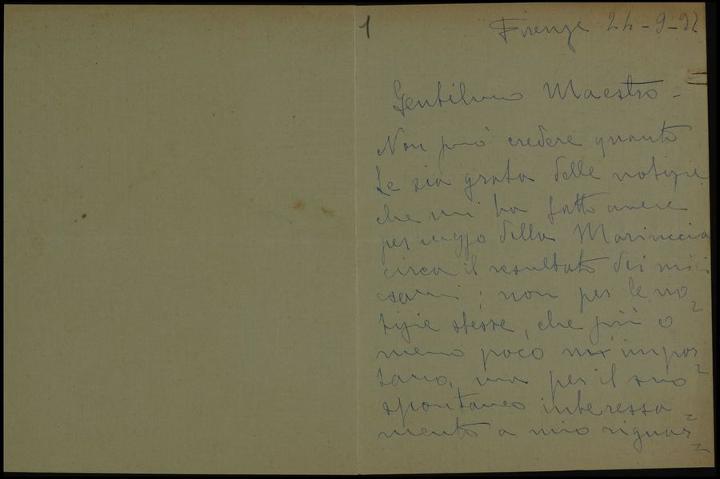 1
Firenze 24-9-92
Gentilmo Maestro -
Non può credere quanto
Le sia grata delle notizie
che mi ha fatto avere
per mezzo della Mariuccia
circa il resultato dei miei
esami; non per le no-
tizie stesse, che più o
meno poco m'impor-
tano, ma per il suo
spontaneo interessa-
mento a mio riguar-